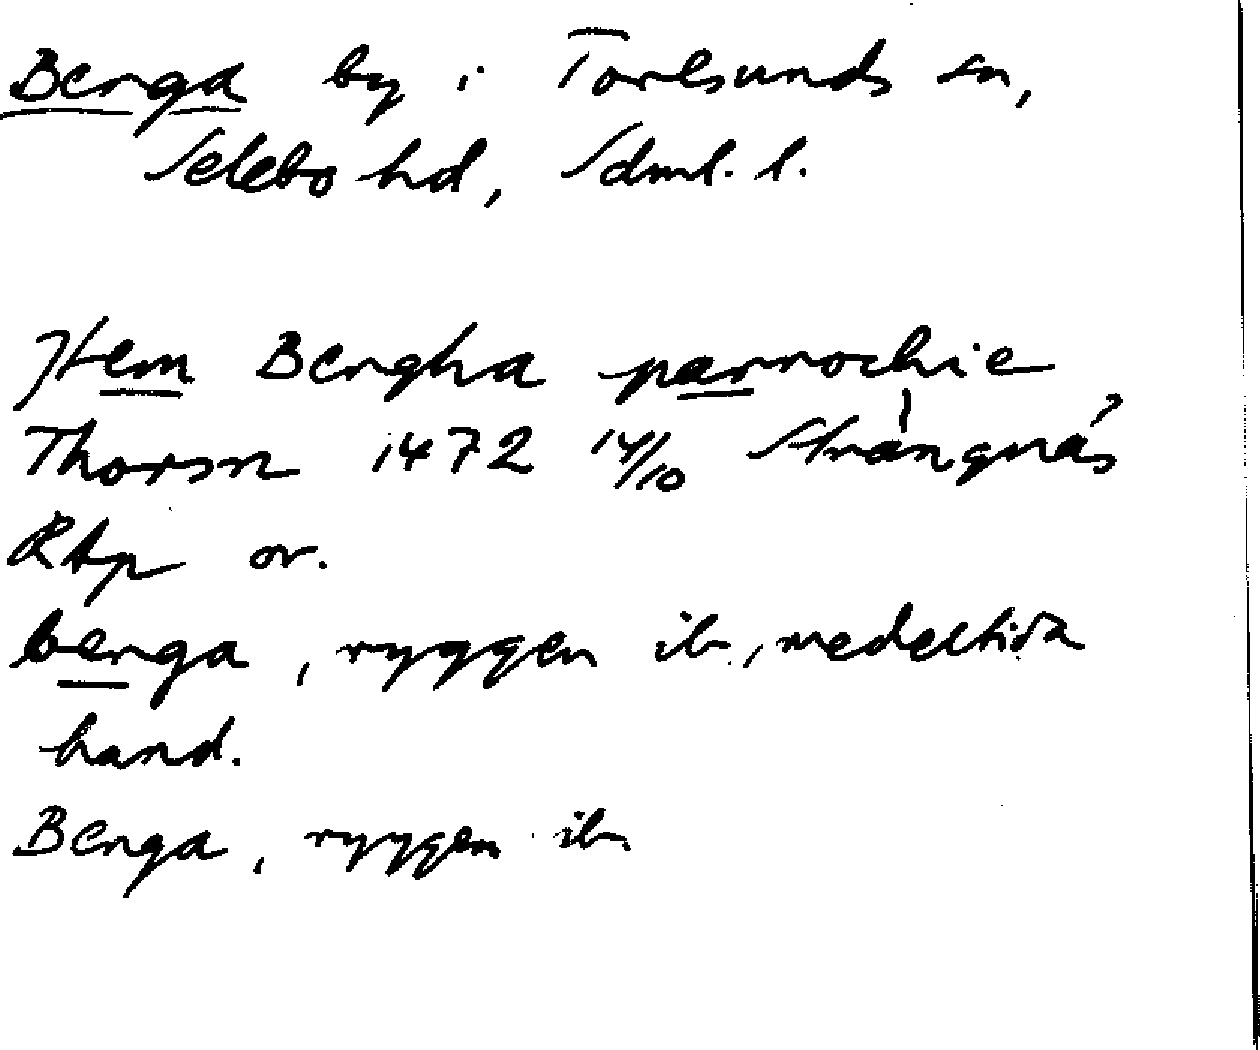 Berga by i Toresunds sn,
Selebo hd, Sdml. l.
Jtem Bergha parrochie
Thorsn 1472 14/10 Strängnäs
RAp or.
berga, ryggen ib, medeltida
hand.
Berga, ryggen ib